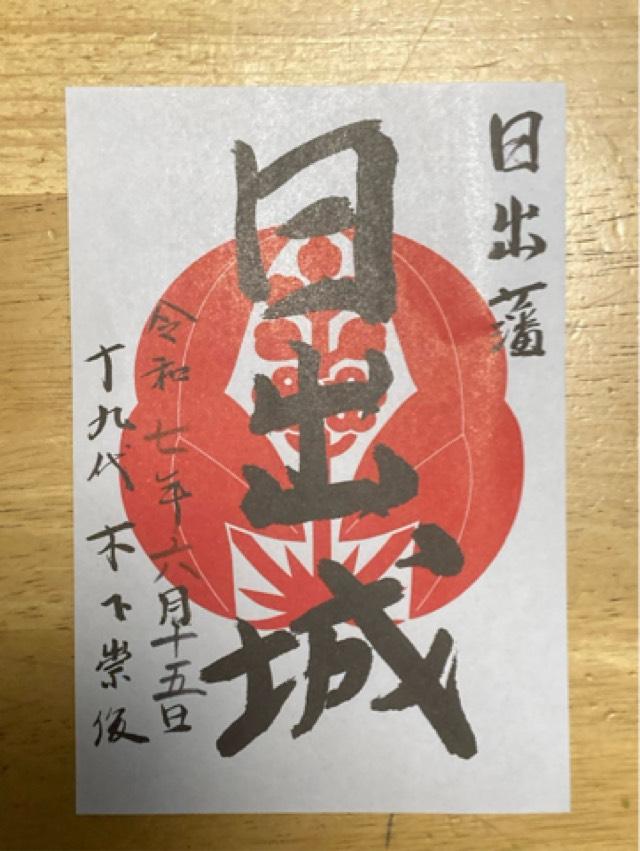 日出藩
日出城
令和七年六月十五日
十九代木下崇俊